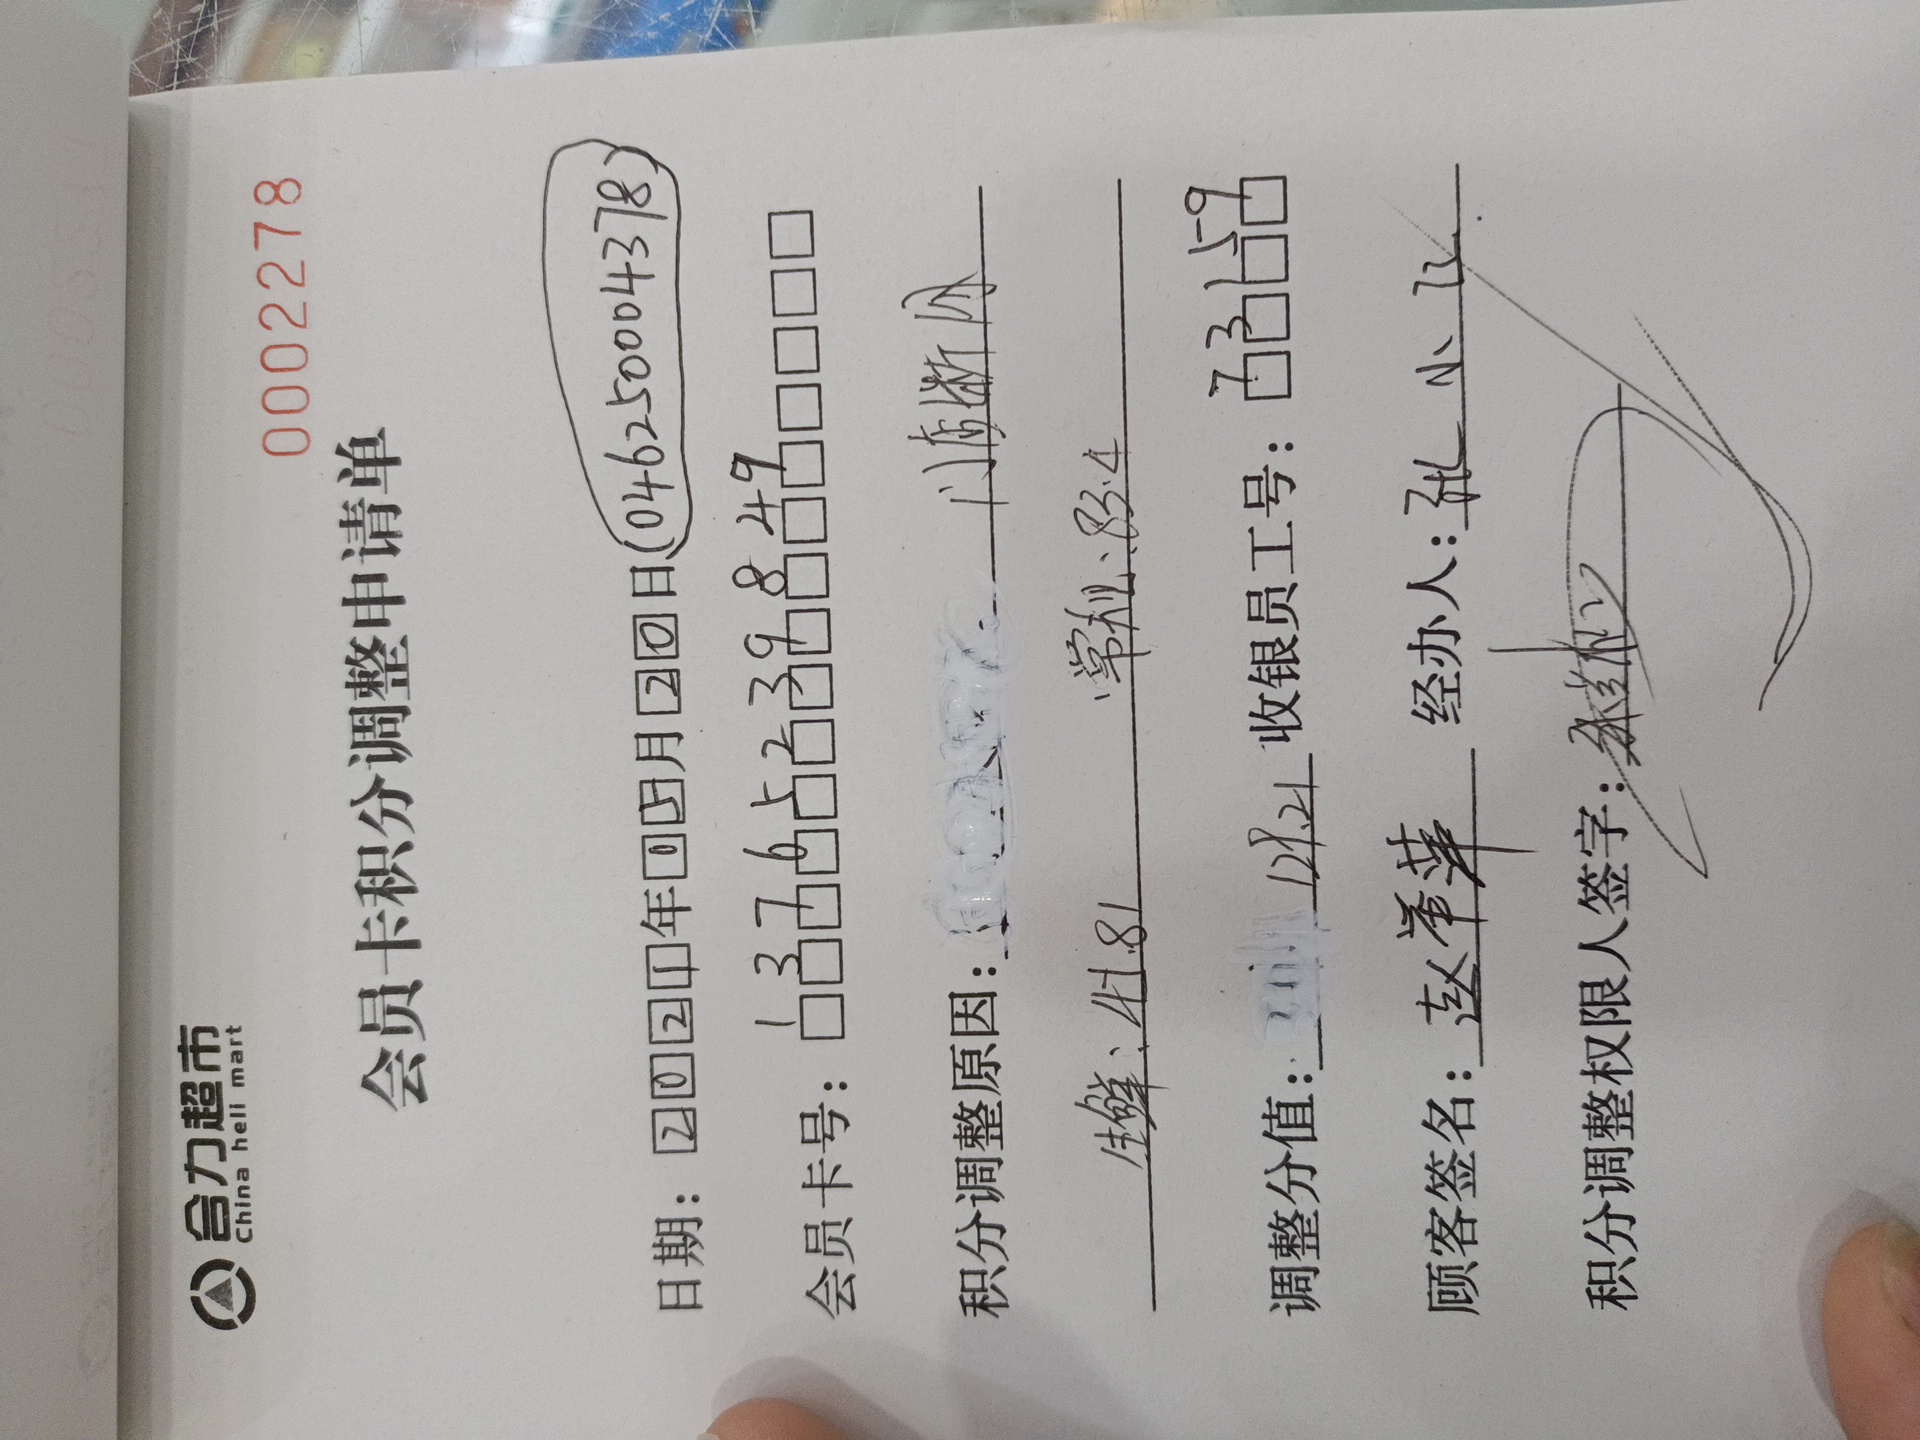 合力超市
China heli mart
0002278
会员卡积分调整申请单
日期：2021年05月20日(0462500043 78)
会员卡号：13765239849
积分调整原因： 门店断网
生鲜：41.81 常规：83.4
调整分值： 129.21 收银员工号：73159
顾客签名：赵 萍 经办人：孔小
积分调整权限人签字：